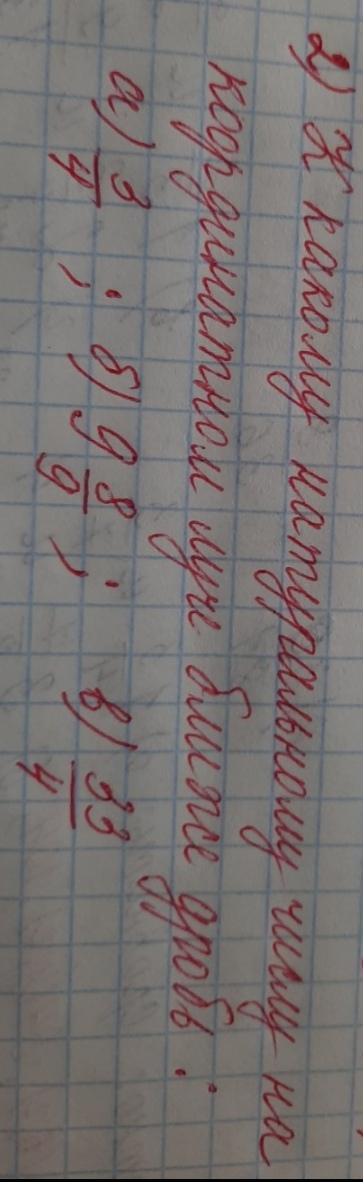 2) К какому натуральному числу на
координатном луче ближе дробь:
а) 3/4 ; б) 9 8/9 ; в) 33/4